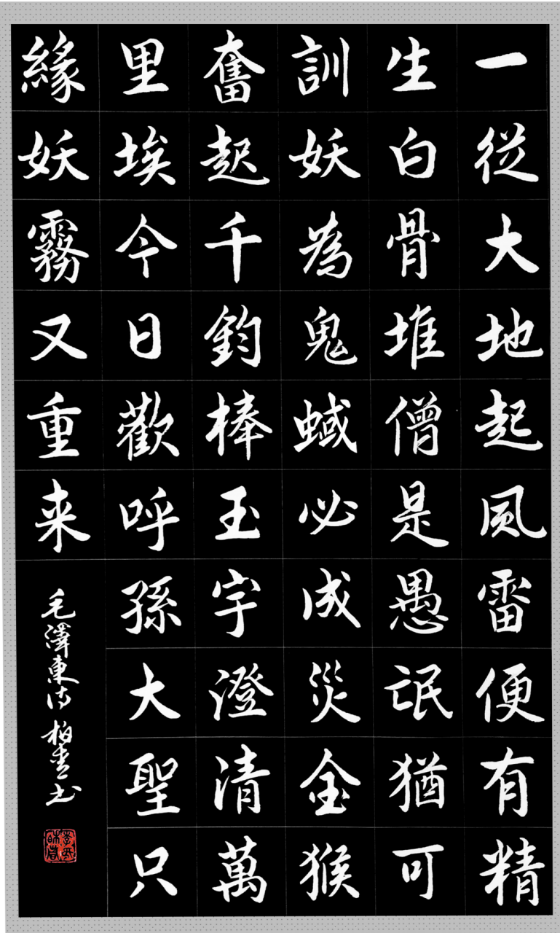 一從大地起風雷便有精
生白骨堆僧是愚氓猶可
訓妖為鬼蜮必成災金猴
奮起千鈞棒玉宇澄清萬
里埃今日歡呼孫大聖只
緣妖霧又重来
毛澤東詩 柏青书